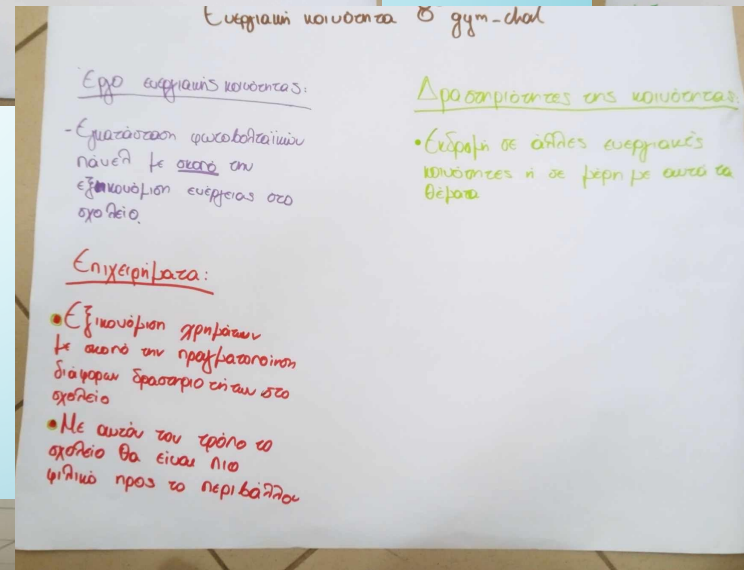 Ενεργιακή κοινότητα 8 gym-chal
Εργο ενεργιακής κοινότητας:
-Εγκατάσταση φωτοβολταϊκών
πάνελ με σκοπό την
εξοικονόμιση ενέργειας στο
σχολείο.
Επιχειρήματα:
•Εξικονόμιση χρημάτων
με σκοπό την πραγματοποίηση
διάφορων δραστηριοτήτων στο
σχολείο
•Με αυτόν τον τρόπο το
σχολείο θα είναι πιο
φιλικό προς το περιβάλλον
Δραστηριότητες της κοινότητας:
•Εκδρομή σε άλλες ενεργιακές
κοινότητες ή σε μέρη με αυτά τα
θέματα